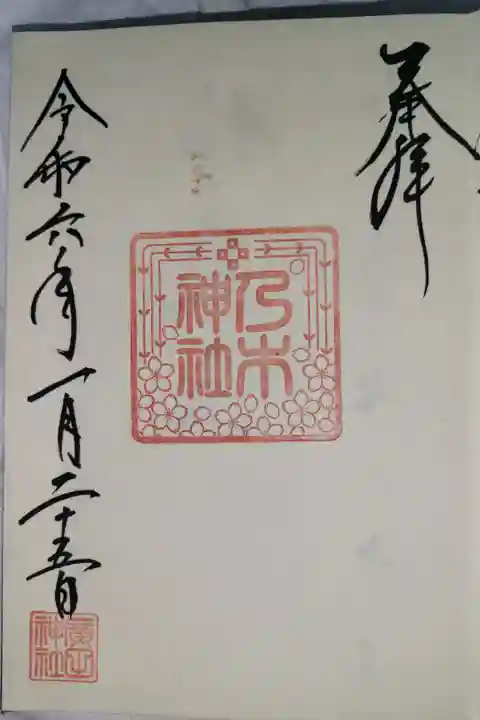 奉拝
乃木
神社
令和六年一月二十五日
神社